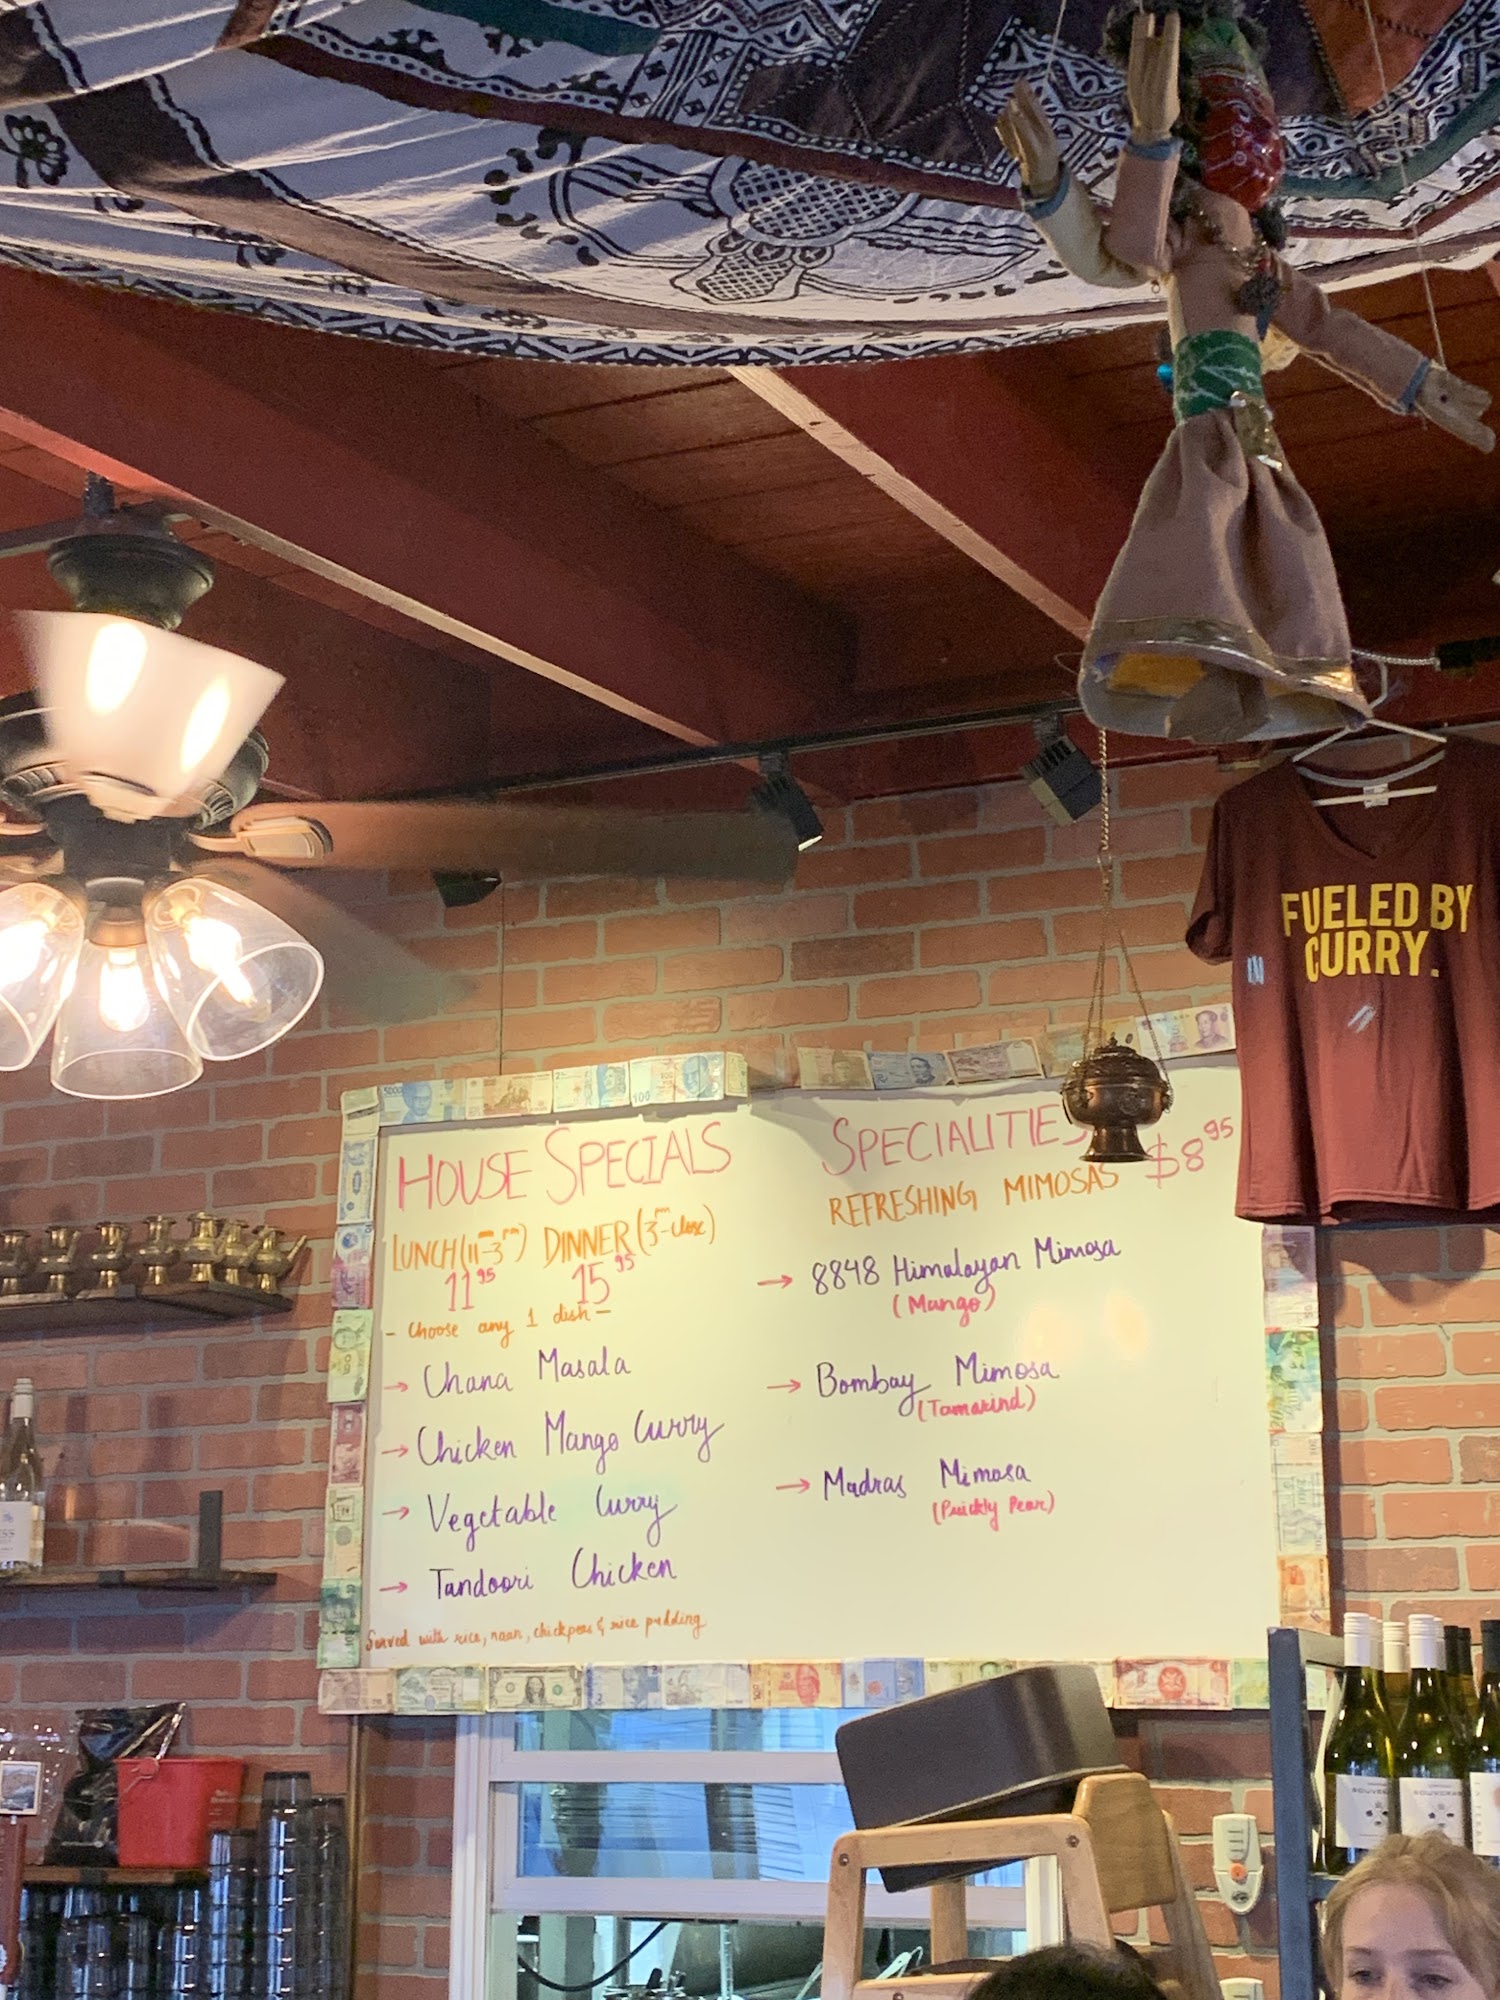 FUELED BY
CURRY.
HOUSE SPECIALS
LUNCH (11am-3pm) DINNER (3pm-close)
11.95 15.95
- Choose any 1 dish -
→ Chana Masala
→ Chicken Mango Curry
→ Vegetable Curry
→ Tandoori Chicken
Served with rice, naan, chickpeas & rice pudding
SPECIALITIES
REFRESHING MIMOSAS $8 95
→ 8848 Himalayan Mimosa
(Mango)
→ Bombay Mimosa
(Tamarind)
→ Madras Mimosa
(Prickly Pear)
5000
100